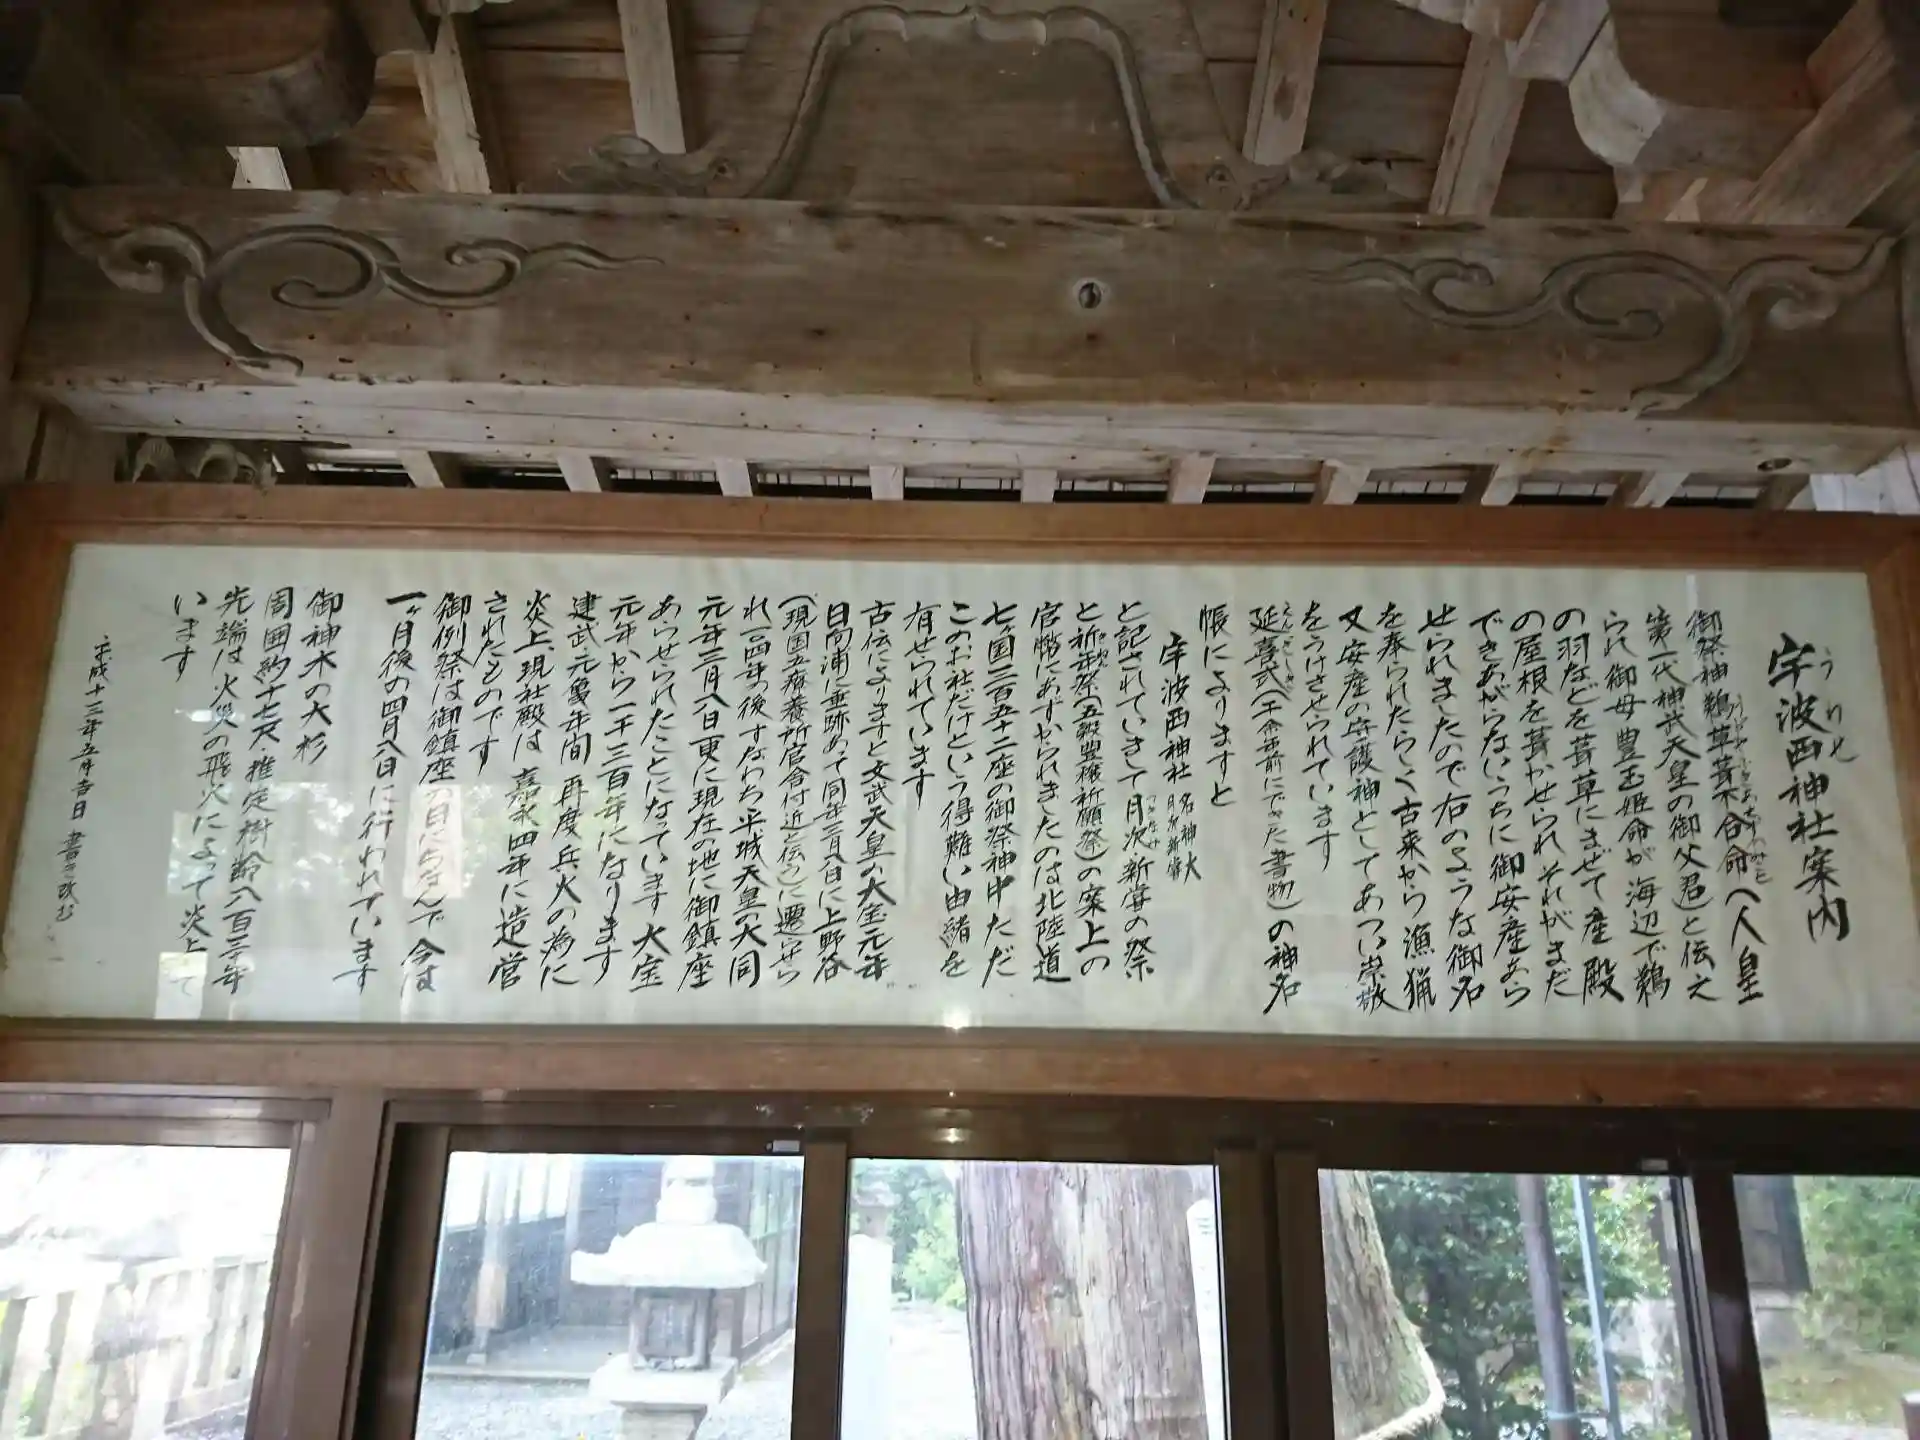 宇波西神社案内
御祭神鵜草葺不合命(人皇
第一代神武天皇の御父君)と伝え
られ御母豊玉姫命が海辺で鵜
の羽などを葺草にまぜて産殿
の屋根を葺かせられそれがまだ
できあがらないうちに御安産あら
せられましたので右のような御名
を奉られたらしく古来から漁猟
又安産の守護神としてあつい崇敬
をうけさせられています
延喜式(千余年前にでた書物)の神名
帳によりますと
宇波西神社 名神大 月次新嘗
と記されていまして月次新嘗の祭
と祈年祭(五穀豊穣祈願祭)の案上の
官幣にあずかられましたのは北陸道
七ヶ国三百五十二座の御祭神中ただ
このお社だけという得難い由緒を
有せられています
古伝によりますと文武天皇の大宝元年
日向浦に垂跡あって同年三月八日に上野谷
(現国立療養所官舎付近と伝う)に遷守せら
れ一〇四年の後すなわち平城天皇の大同
元年三月八日更に現在の地に御鎮座
あらせられたことになっています 大宝
元年から一千三百年になります
建武 元亀年間 再度兵火の為に
炎上、現社殿は 嘉永四年に造営
されたものです
御例祭は御鎮座の日にちなんで 今は
一ヶ月後の四月八日に行われています
御神木の大杉
周囲約十七尺・推定樹齢八百三十年
先端は火災の飛火によって炎上 て
います
平成十三年五月吉日 書き改む